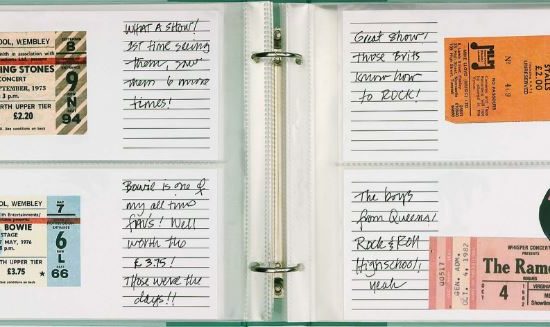 OOL, WEMBLEY
NG STONES
CONCERT
TEMBER, 1973
p.m.
RTH UPPER TIER
£2.20
SEPTEMBER
8
9
N
94
WHAT A SHOW!
1ST time seeing
them, saw
them 6 more
times!
OOL, WEMBLEY
BOWIE
STAGE
MAY, 1976
p.m.
TH UPPER TIER
£3.75
MAY
7
6
L
66
Bowie is one of
my all time
favs! Well
worth the
£3.75!
Those were the
days!!
Great Show!
Those Brits
know how
to ROCK!
STALLS
£2.00
The boys
from Queens!
Rock & Roll
Highschool!
yeah
00517
GEN. ADM.
OCT. 4, 1982
OCT
4
1982
WHISPER CONCERT
PRESENTS
The Ramo
VIRGINIA